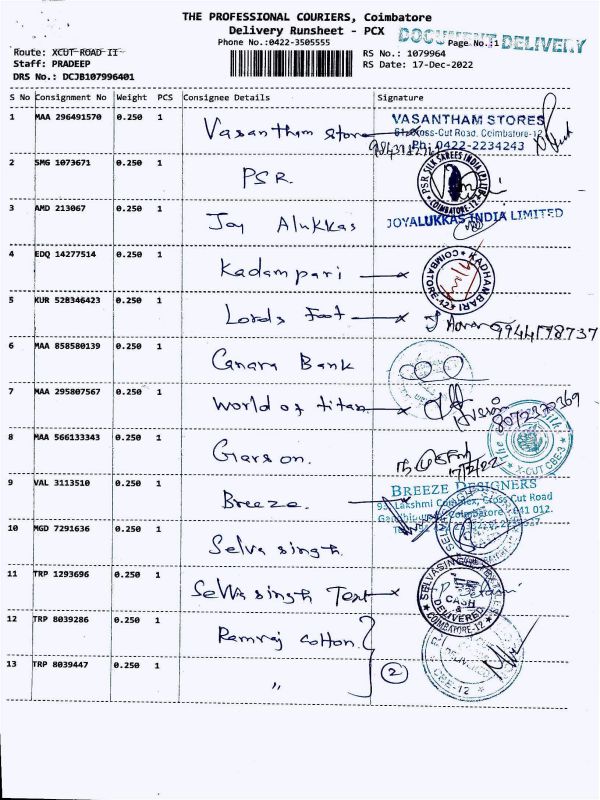 THE PROFESSIONAL COURIERS, Coimbatore
Delivery Runsheet - PCX
DOCUMENT DELIVERY
Phone No.:0422-3505555
Page No.:1
Route: XCUT ROAD II
RS No.: 1079964
Staff: PRADEEP
RS Date: 17-Dec-2022
DRS No.: DCJB107996401
S No Consignment No Weight PCS Consignee Details Signature
1 MAA 296491570 0.250 1 Vasantham Store
VASANTHAM STORES
61, Cross-Cut Road, Coimbatore-12
Ph: 0422-2234243
2 SMG 1073671 0.250 1 PSR
PSR SILK SAREES INDIA (P) LTD
COIMBATORE-12
3 AMD 213067 0.250 1 Joy Alukkas
JOYALUKKAS INDIA LIMITED
4 EDQ 14277514 0.250 1 Kadampari
KADHAMBARI
COIMBATORE-12
5 KUR 528346423 0.250 1 Lords Foot
9944178737
6 MAA 858580139 0.250 1 Canara Bank
7 MAA 295807567 0.250 1 World of titan
8072370369
8 MAA 566133343 0.250 1 Garson.
17/12/22
X-CUT CBE-3
9 VAL 3113510 0.250 1 Breeze.
BREEZE DESIGNERS
Lakshmi Complex, Cross Cut Road
Coimbatore - 641 012.
10 MGD 7291636 0.250 1 Selva singh
11 TRP 1293696 0.250 1 Selva singh Text
CASH & DELIVERED
COIMBATORE-12
12 TRP 8039286 0.250 1 Ramraj Cotton.
13 TRP 8039447 0.250 1 〃 2
CBE-12